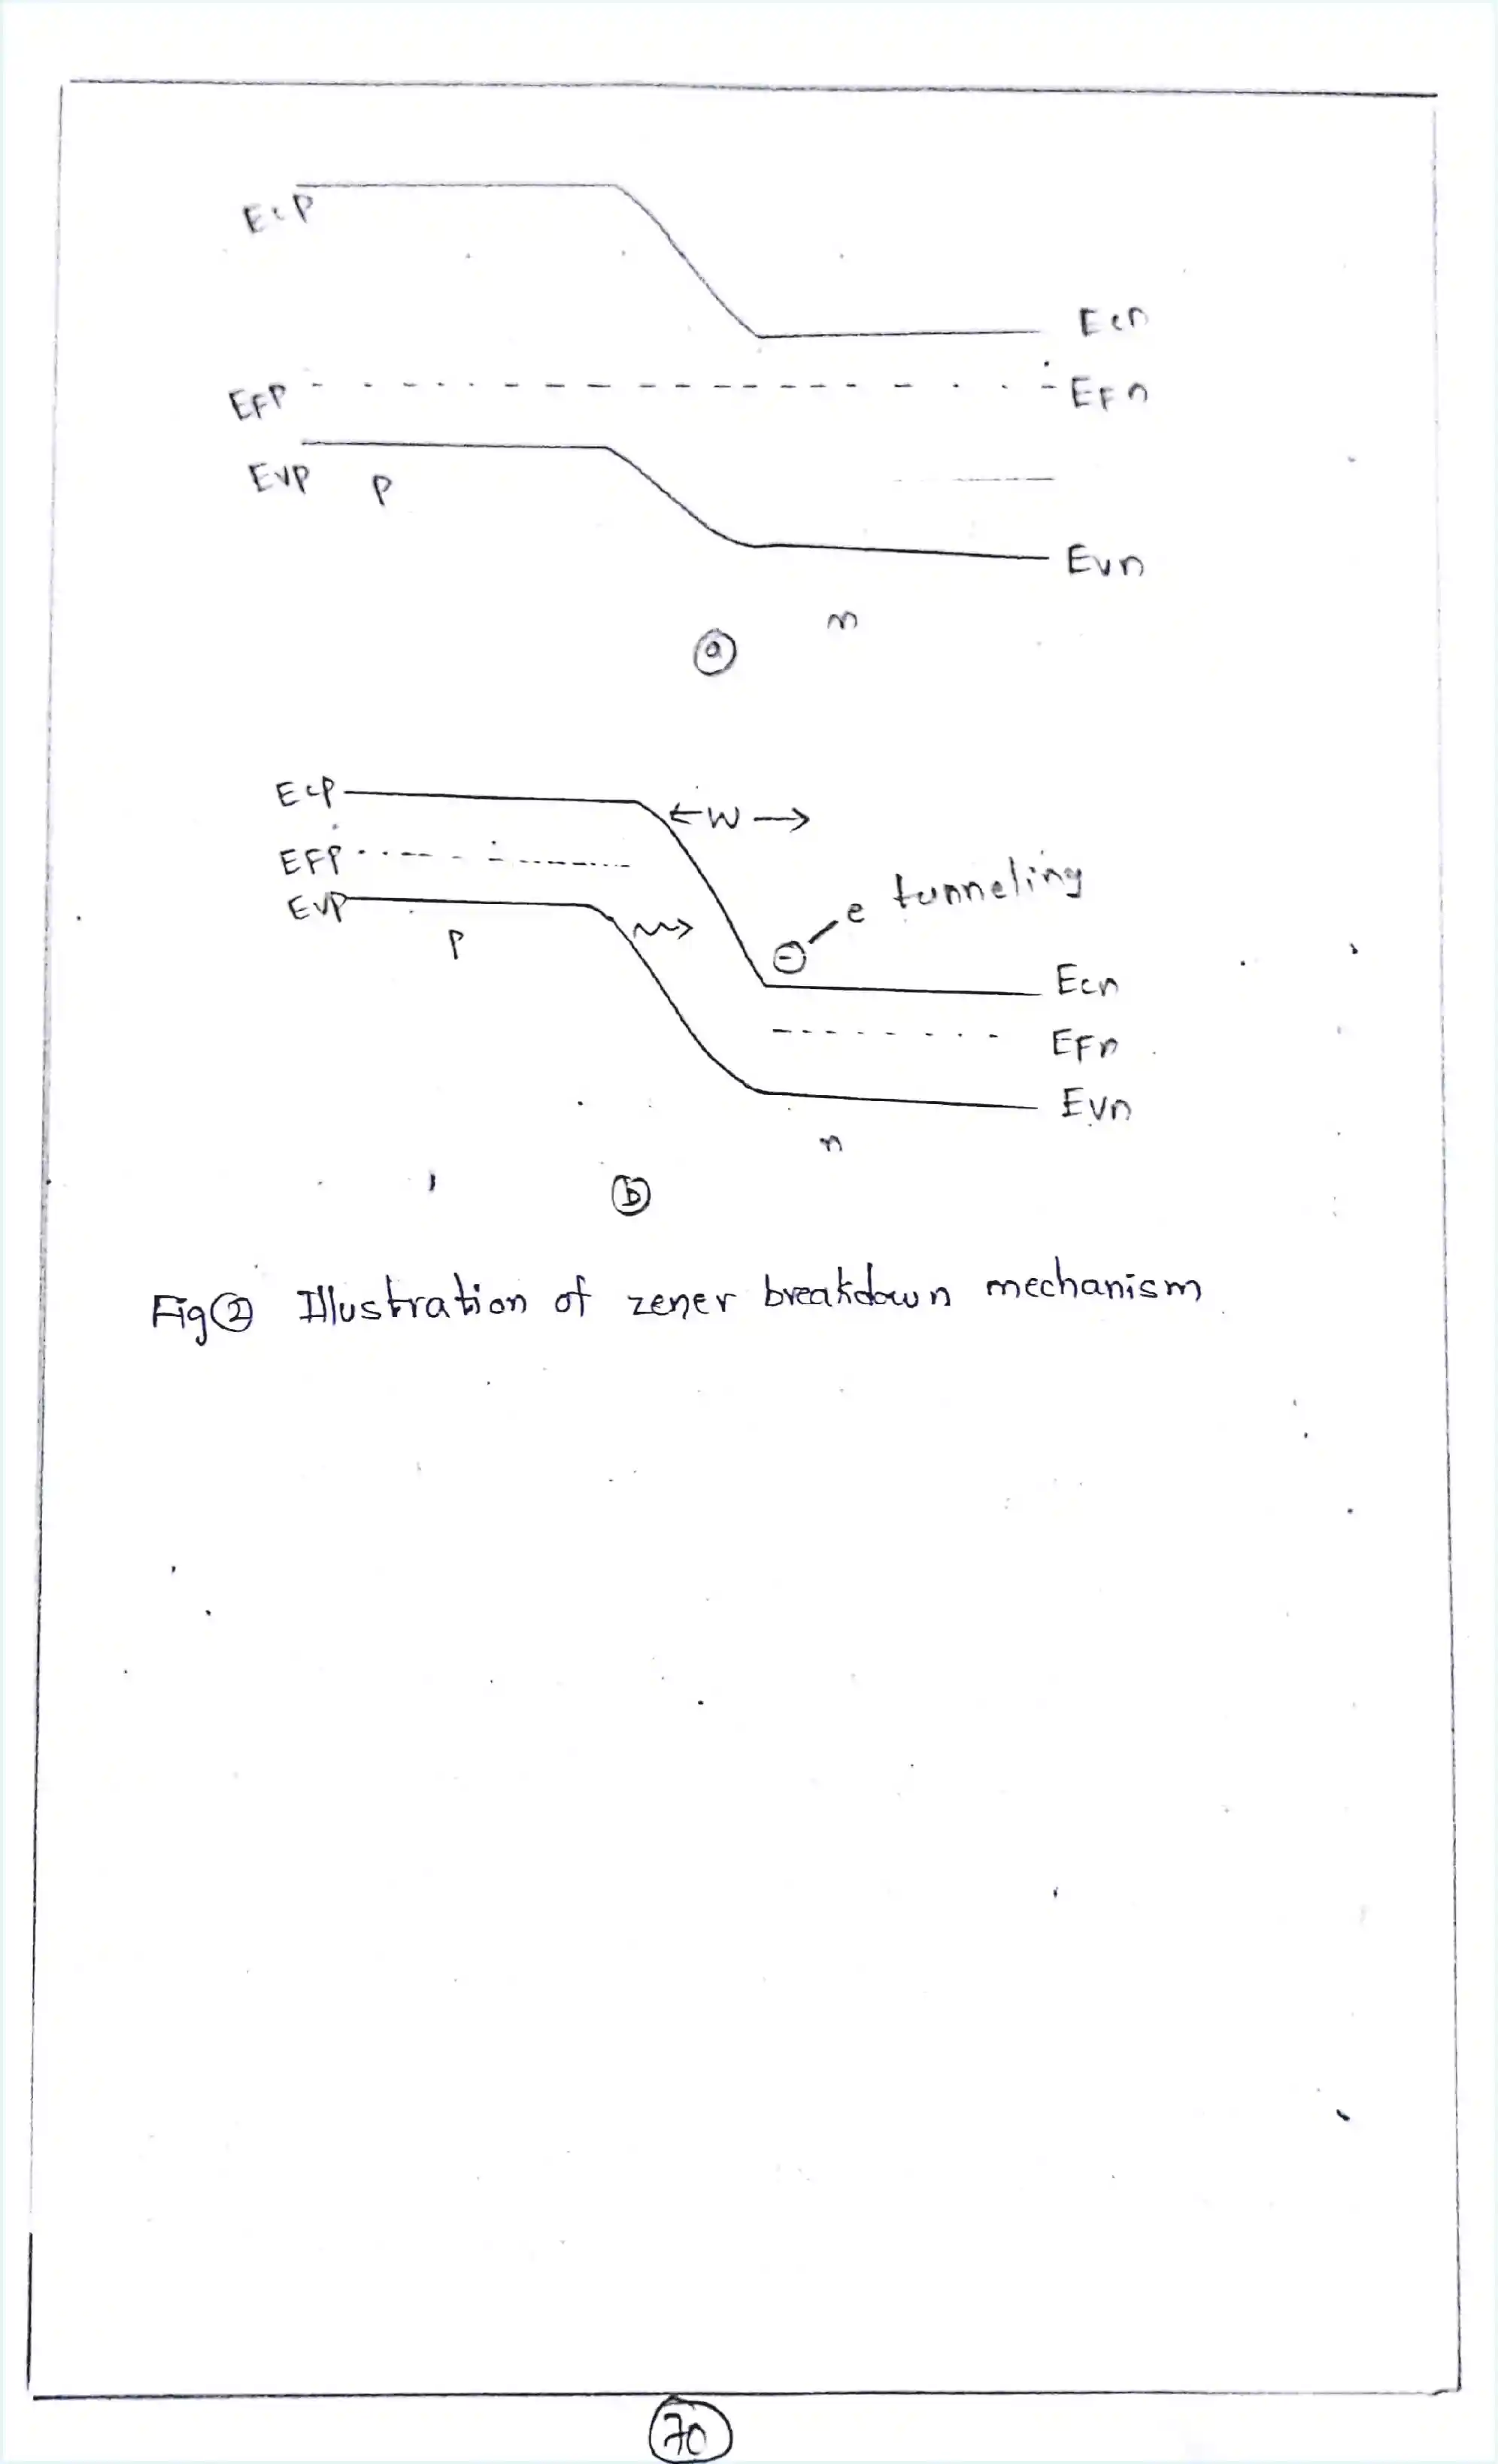 EcP
Ecn
EFP
EFn
EVP
P
Evn
n
a
EcP
←W→
EFP
e tunneling
EVP
P
Ecn
EFn
Evn
n
b
Fig 2 Illustration of zener breakdown mechanism
70